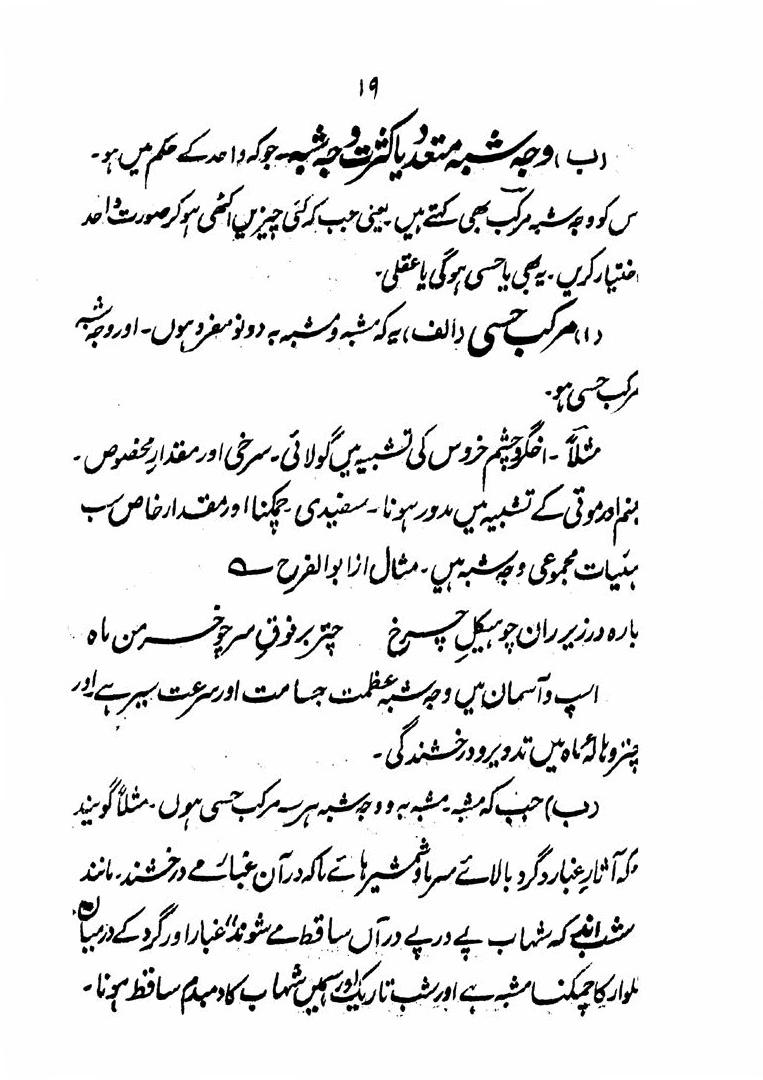 ۱۹
(ب) وجہ شبہ متعدد یا کثرت وجہ شبہ۔ جو کہ واحد کے حکم میں ہو۔
س کو وجہ شبہ مرکب بھی کہتے ہیں۔ یعنی جب کہ کئی چیزیں اکٹھی ہو کر صورت واحد
ختیار کریں۔ یہ بھی یا حسی ہوگی یا عقلی۔
(۱) مرکب حسی (الف) یہ کہ مشبہ و مشبہ بہ دونو مفرد ہوں۔ اور وجہ شبہ
مرکب حسی ہو۔
مثلاً۔ اخگر و چشم خروس کی تشبیہ میں گولائی۔ سرخی اور مقدارِ مخصوص۔
بنم اور موتی کے تشبیہ میں مدور ہونا۔ سفیدی۔ چمکنا اور مقدار خاص سب
ہئیات مجموعی وجہ شبہ ہیں۔ مثال از ابوالفرح ؎
بارہ در زیر ران چو ہیکلِ چرخ چتر بر فوقِ سر چو خرمن ماہ
اسپ و آسمان میں وجہ شبہ عظمت جسامت اور سرعت سیر ہے اور
چتر و ہالۂ ماہ میں تدویر و درخشندگی۔
(ب) جب کہ مشبہ۔ مشبہ بہ و وجہ شبہ ہر سہ مرکب حسی ہوں۔ مثلاً گویند
کہ آثارِ غبار و گرد بالائے سر ما و شمشیر ہائے ما کہ در آن غبار مے درخشند۔ مانند
شب اند کہ شہاب پے در پے در آں ساقط مے شوند" غبار اور گرد کے درمیان
لوار کا چمکنا مشبہ ہے اور شب تاریک اور سمیں شہاب کا دمبدم ساقط ہونا۔